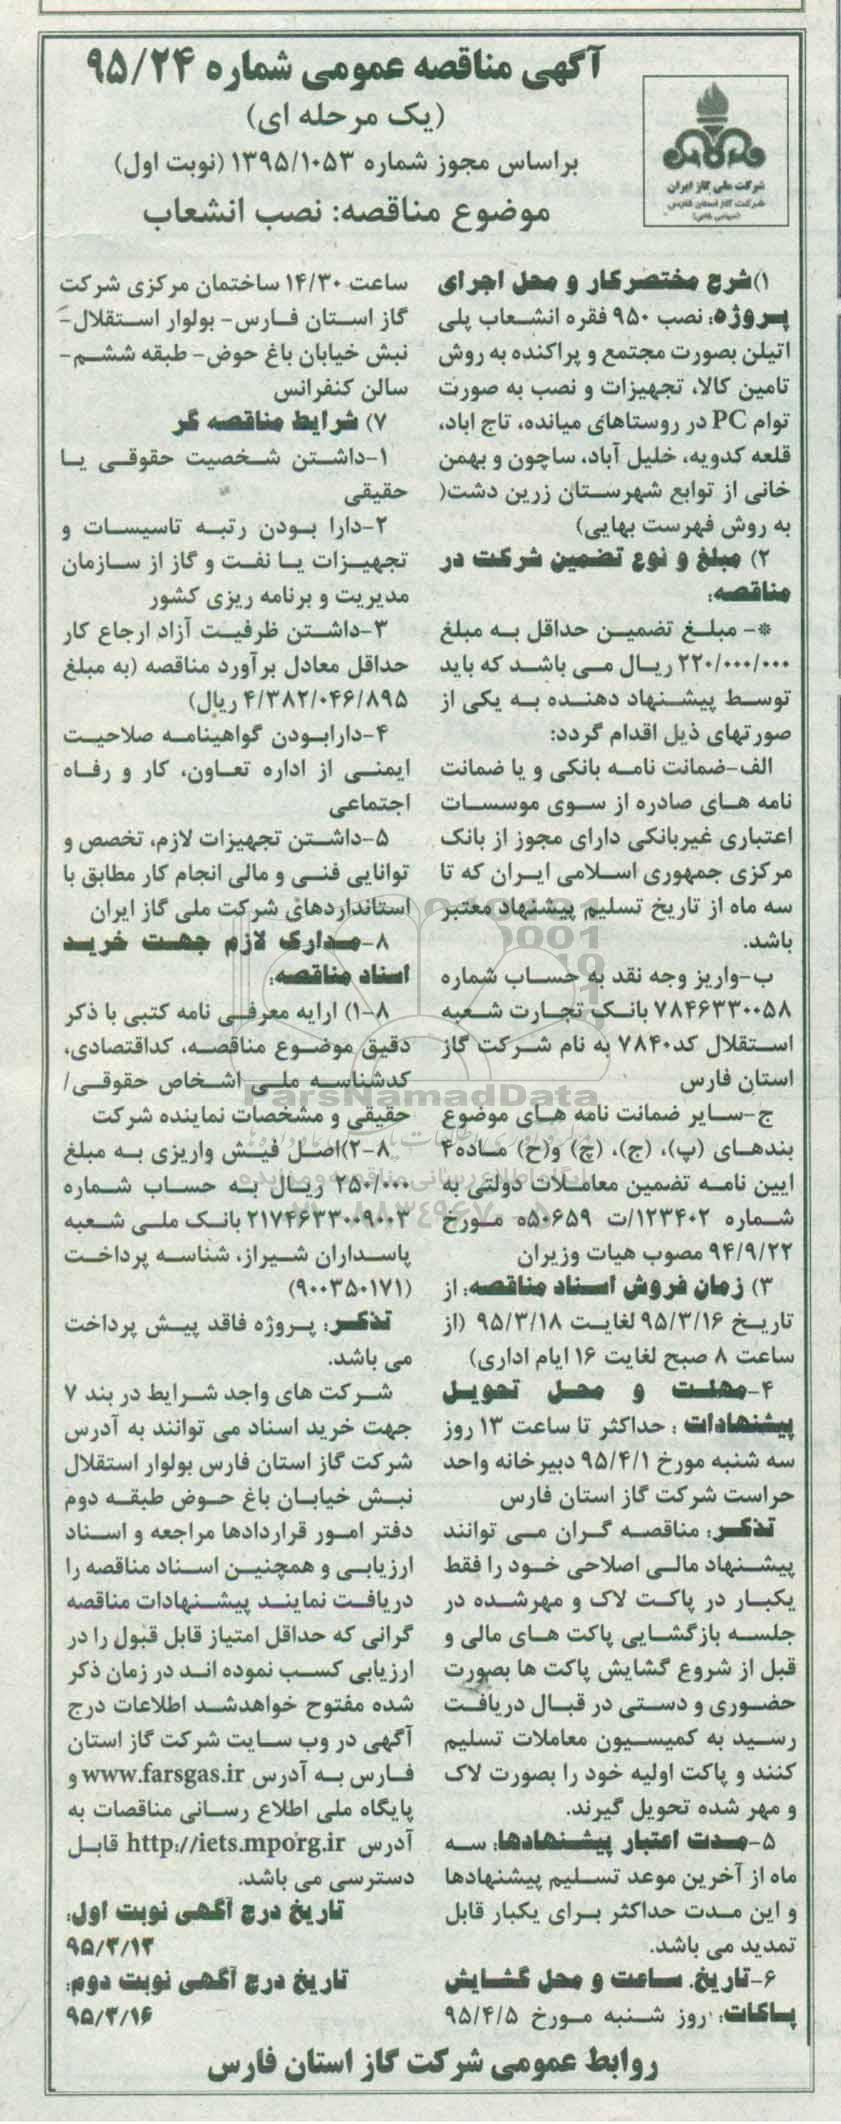 آگهی مناقصه عمومی شماره ۹۵/۲۴
(یک مرحله ای)
براساس مجوز شماره ۱۳۹۵/۱۰۵۳ (نوبت اول)
موضوع مناقصه: نصب انشعاب
شرکت ملی گاز ایران
شرکت گاز استان فارس
(سهامی خاص)
۱)شرح مختصرکار و محل اجرای
پروژه: نصب ۹۵۰ فقره انشعاب پلی
اتیلن بصورت مجتمع و پراکنده به روش
تامین کالا، تجهیزات و نصب به صورت
توام PC در روستاهای میانده، تاج اباد،
قلعه کدویه، خلیل آباد، ساچون و بهمن
خانی از توابع شهرستان زرین دشت(
به روش فهرست بهایی)
۲) مبلغ و نوع تضمین شرکت در
مناقصه:
*- مبلغ تضمین حداقل به مبلغ
۲۲۰/۰۰۰/۰۰۰ ریال می باشد که باید
توسط پیشنهاد دهنده به یکی از
صورتهای ذیل اقدام گردد:
الف-ضمانت نامه بانکی و یا ضمانت
نامه های صادره از سوی موسسات
اعتباری غیربانکی دارای مجوز از بانک
مرکزی جمهوری اسلامی ایران که تا
سه ماه از تاریخ تسلیم پیشنهاد معتبر
باشد.
ب-واریز وجه نقد به حساب شماره
۷۸۴۶۳۳۰۰۵۸ بانک تجارت شعبه
استقلال کد۷۸۴۰ به نام شرکت گاز
استان فارس
ج-سایر ضمانت نامه های موضوع
بندهای (پ)، (ج)، (چ) و(ح) ماده۴
ایین نامه تضمین معاملات دولتی به
شماره ۱۲۳۴۰۲/ت ۵۰۶۵۹ه مورخ
۹۴/۹/۲۲ مصوب هیات وزیران
۳) زمان فروش اسناد مناقصه: از
تاریخ ۹۵/۳/۱۶ لغایت ۹۵/۳/۱۸ (از
ساعت ۸ صبح لغایت ۱۶ ایام اداری)
۴-مهلت و محل تحویل
پیشنهادات : حداکثر تا ساعت ۱۳ روز
سه شنبه مورخ ۹۵/۴/۱ دبیرخانه واحد
حراست شرکت گاز استان فارس
تذکر: مناقصه گران می توانند
پیشنهاد مالی اصلاحی خود را فقط
یکبار در پاکت لاک و مهرشده در
جلسه بازگشایی پاکت های مالی و
قبل از شروع گشایش پاکت ها بصورت
حضوری و دستی در قبال دریافت
رسید به کمیسیون معاملات تسلیم
کنند و پاکت اولیه خود را بصورت لاک
و مهر شده تحویل گیرند.
۵-مدت اعتبار پیشنهادها: سه
ماه از آخرین موعد تسلیم پیشنهادها
و این مدت حداکثر برای یکبار قابل
تمدید می باشد.
۶-تاریخ، ساعت و محل گشایش
پاکات: روز شنبه مورخ ۹۵/۴/۵
ساعت ۱۴/۳۰ ساختمان مرکزی شرکت
گاز استان فارس- بولوار استقلال-
نبش خیابان باغ حوض- طبقه ششم-
سالن کنفرانس
۷) شرایط مناقصه گر
۱-داشتن شخصیت حقوقی یا
حقیقی
۲-دارا بودن رتبه تاسیسات و
تجهیزات یا نفت و گاز از سازمان
مدیریت و برنامه ریزی کشور
۳-داشتن ظرفیت آزاد ارجاع کار
حداقل معادل برآورد مناقصه (به مبلغ
۴/۳۸۲/۰۴۶/۸۹۵ ریال)
۴-دارابودن گواهینامه صلاحیت
ایمنی از اداره تعاون، کار و رفاه
اجتماعی
۵-داشتن تجهیزات لازم، تخصص و
توانایی فنی و مالی انجام کار مطابق با
استانداردهای شرکت ملی گاز ایران
۸-مدارک لازم جهت خرید
اسناد مناقصه:
۸-۱) ارایه معرفی نامه کتبی با ذکر
دقیق موضوع مناقصه، کداقتصادی،
کدشناسه ملی اشخاص حقوقی/
حقیقی و مشخصات نماینده شرکت
۸-۲)اصل فیش واریزی به مبلغ
۲۵۰/۰۰۰ ریال به حساب شماره
۲۱۷۴۶۳۳۰۰۹۰۰۳ بانک ملی شعبه
پاسداران شیراز، شناسه پرداخت
(۹۰۰۳۵۰۱۷۱)
تذکر: پروژه فاقد پیش پرداخت
می باشد.
شرکت های واجد شرایط در بند ۷
جهت خرید اسناد می توانند به آدرس
شرکت گاز استان فارس بولوار استقلال
نبش خیابان باغ حوض طبقه دوم
دفتر امور قراردادها مراجعه و اسناد
ارزیابی و همچنین اسناد مناقصه را
دریافت نمایند پیشنهادات مناقصه
گرانی که حداقل امتیاز قابل قبول را در
ارزیابی کسب نموده اند در زمان ذکر
شده مفتوح خواهدشد اطلاعات درج
آگهی در وب سایت شرکت گاز استان
فارس به آدرس www.farsgas.ir و
پایگاه ملی اطلاع رسانی مناقصات به
آدرس http://iets.mporg.ir قابل
دسترسی می باشد.
تاریخ درج آگهی نوبت اول:
۹۵/۳/۱۳
تاریخ درج آگهی نوبت دوم:
۹۵/۳/۱۶
روابط عمومی شرکت گاز استان فارس
ParsNamadData